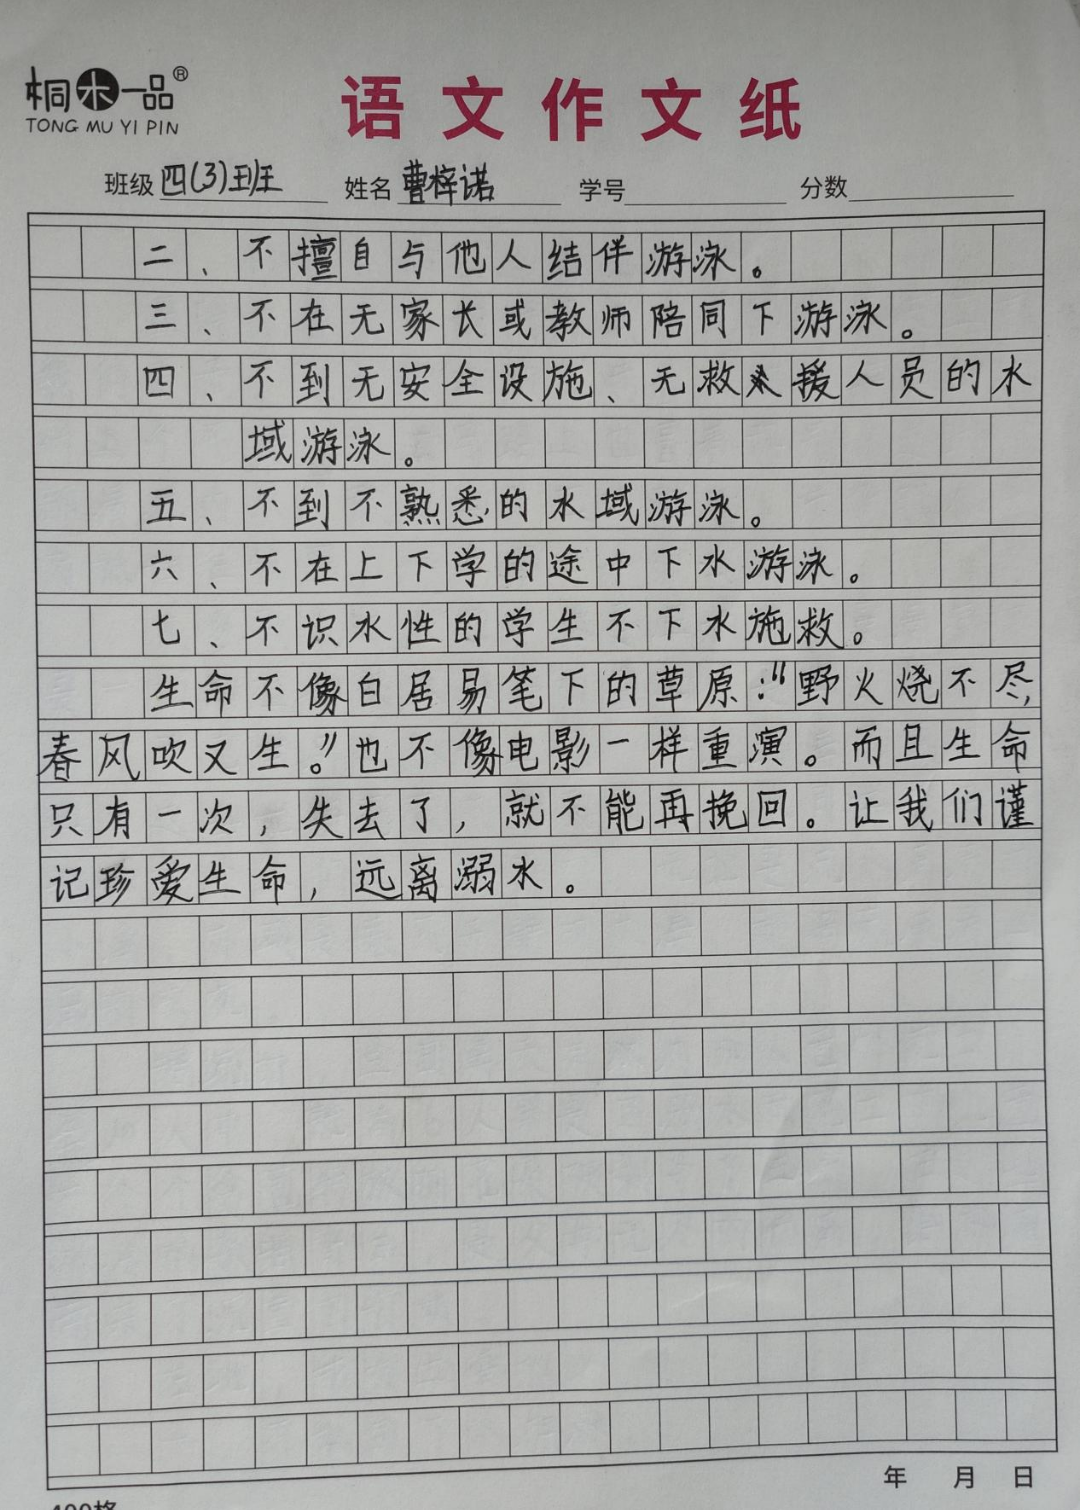 桐木一品®
TONG MU YI PIN
语文作文纸
班级 四(3)班 姓名 曹梓诺 学号 分数
二、不擅自与他人结伴游泳。
三、不在无家长或教师陪同下游泳。
四、不到无安全设施、无救援人员的水
域游泳。
五、不到不熟悉的水域游泳。
六、不在上下学的途中下水游泳。
七、不识水性的学生不下水施救。
生命不像白居易笔下的草原:“野火烧不尽,
春风吹又生。”也不像电影一样重演。而且生命
只有一次,失去了,就不能再挽回。让我们谨
记珍爱生命,远离溺水。
年 月 日